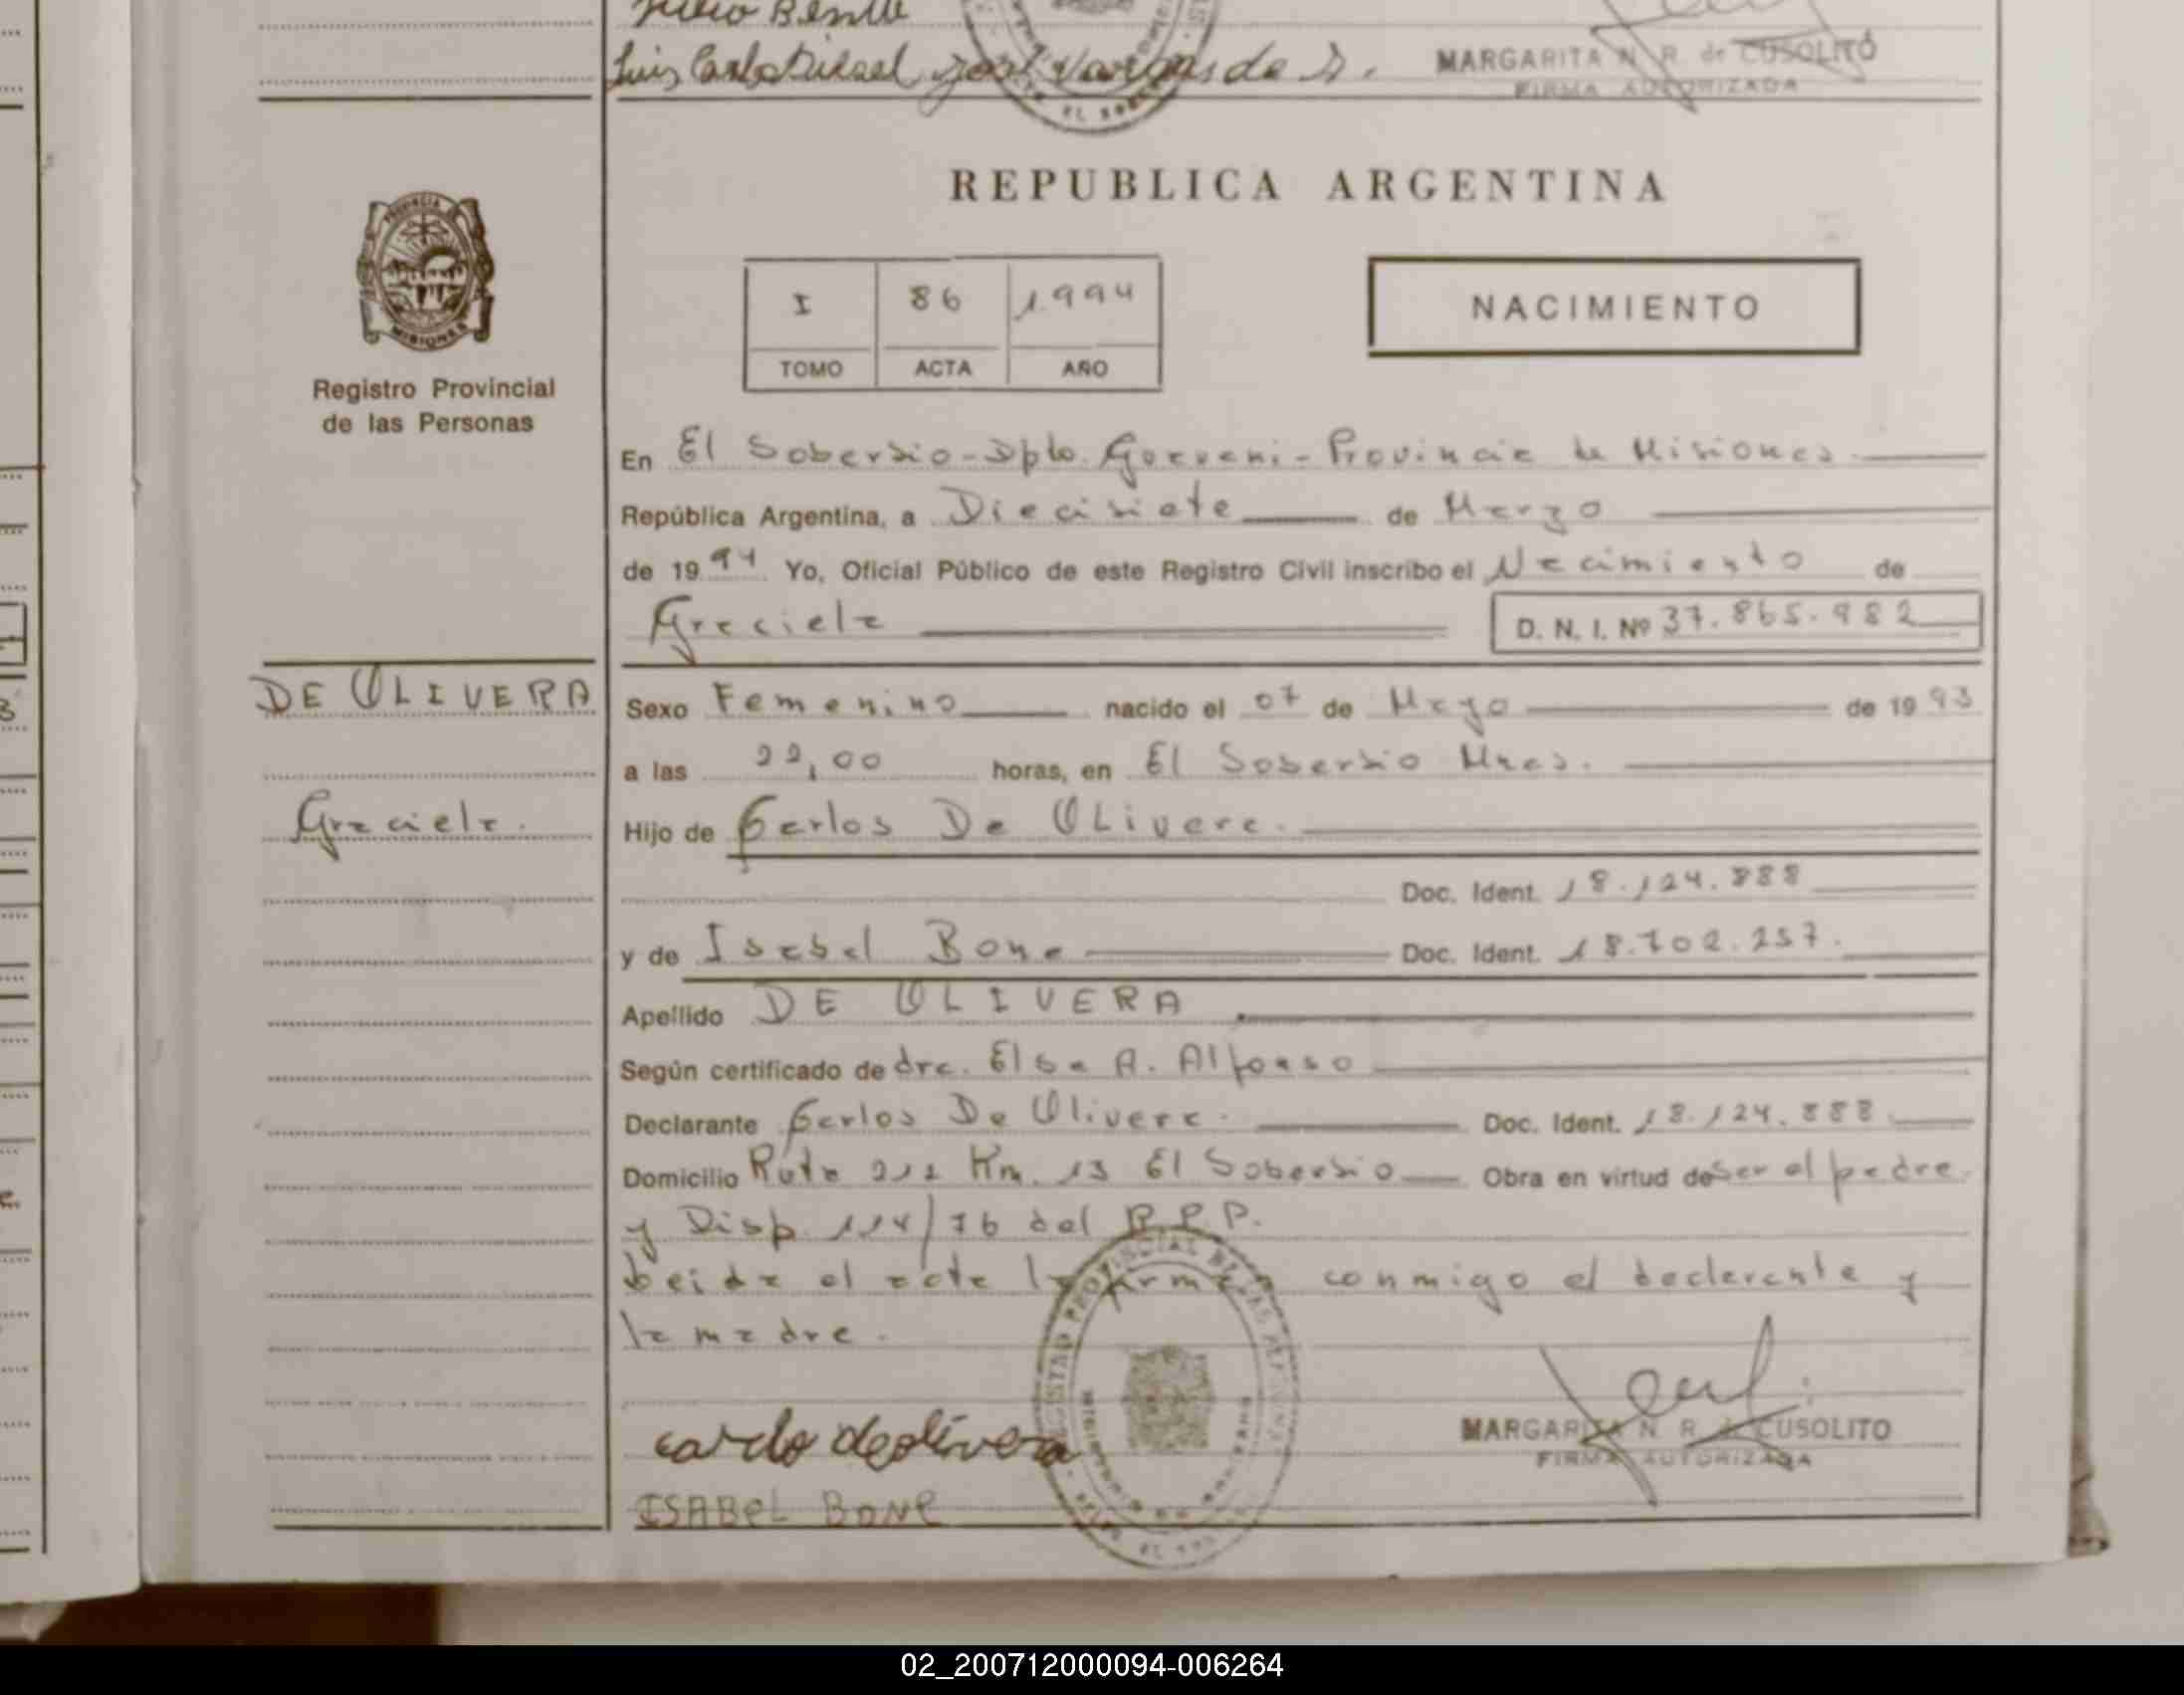 Luis Carlos
MARGARITA N. R. de CUSOLITO
FIRMA AUTORIZADA
REPUBLICA ARGENTINA
PROVINCIA DE
MISIONES
Registro Provincial
de las Personas
I 86 1.994
TOMO ACTA AÑO
NACIMIENTO
En El Soberbio - Dpto. Guarani - Provincia de Misiones
República Argentina, a Diecisiete de Marzo
de 1994 Yo, Oficial Público de este Registro Civil inscribo el Nacimiento de
Graciela D. N. I. Nº 37.865.982
DE OLIVERA
Graciela.
Sexo Femenino nacido el 07 de Mayo de 1993
a las 22,00 horas, en El Soberbio Mnes.
Hijo de Carlos De Olivera.
Doc. Ident. 18.124.888
y de Isabel Bone Doc. Ident. 18.702.257.
Apellido DE OLIVERA
Según certificado de dra. Elsa A. Alfonso
Declarante Carlos De Olivera. Doc. Ident. 18.124.888
Domicilio Ruta 212 Km. 13 El Soberbio Obra en virtud de ser el padre
y Disp. 114/76 del R.P.P.
Leida el acta la firma conmigo el declarante y
la madre.
carlo deolivera
ISABEL BONE
MARGARITA N. R. de CUSOLITO
FIRMA AUTORIZADA
02_200712000094-006264